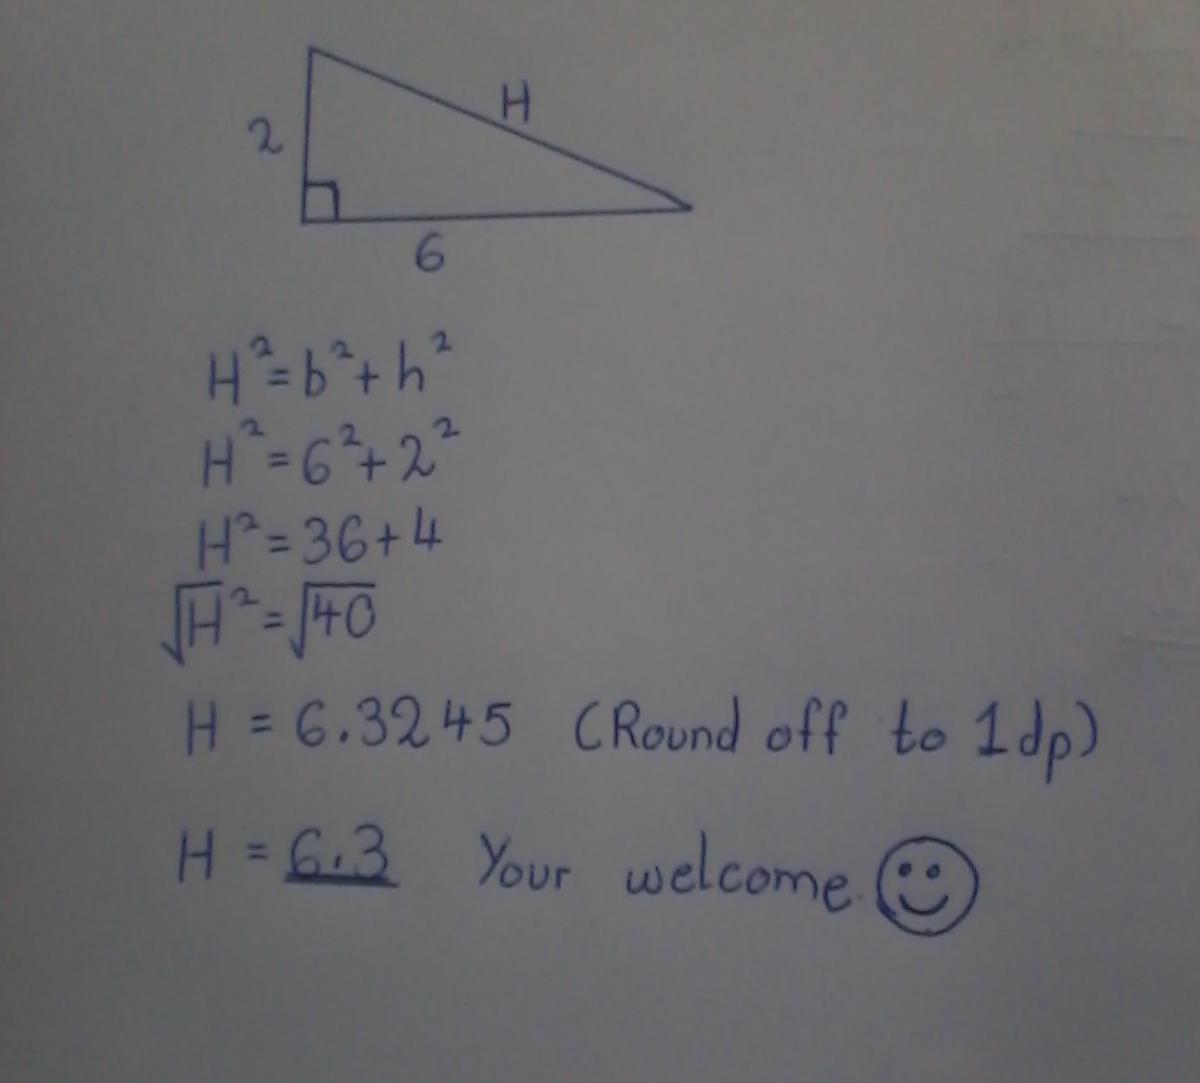 2
H
6
H²=b²+h²
H²=6²+2²
H²=36+4
√H²=√40
H = 6.3245 (Round off to 1dp)
H = 6.3 Your welcome.